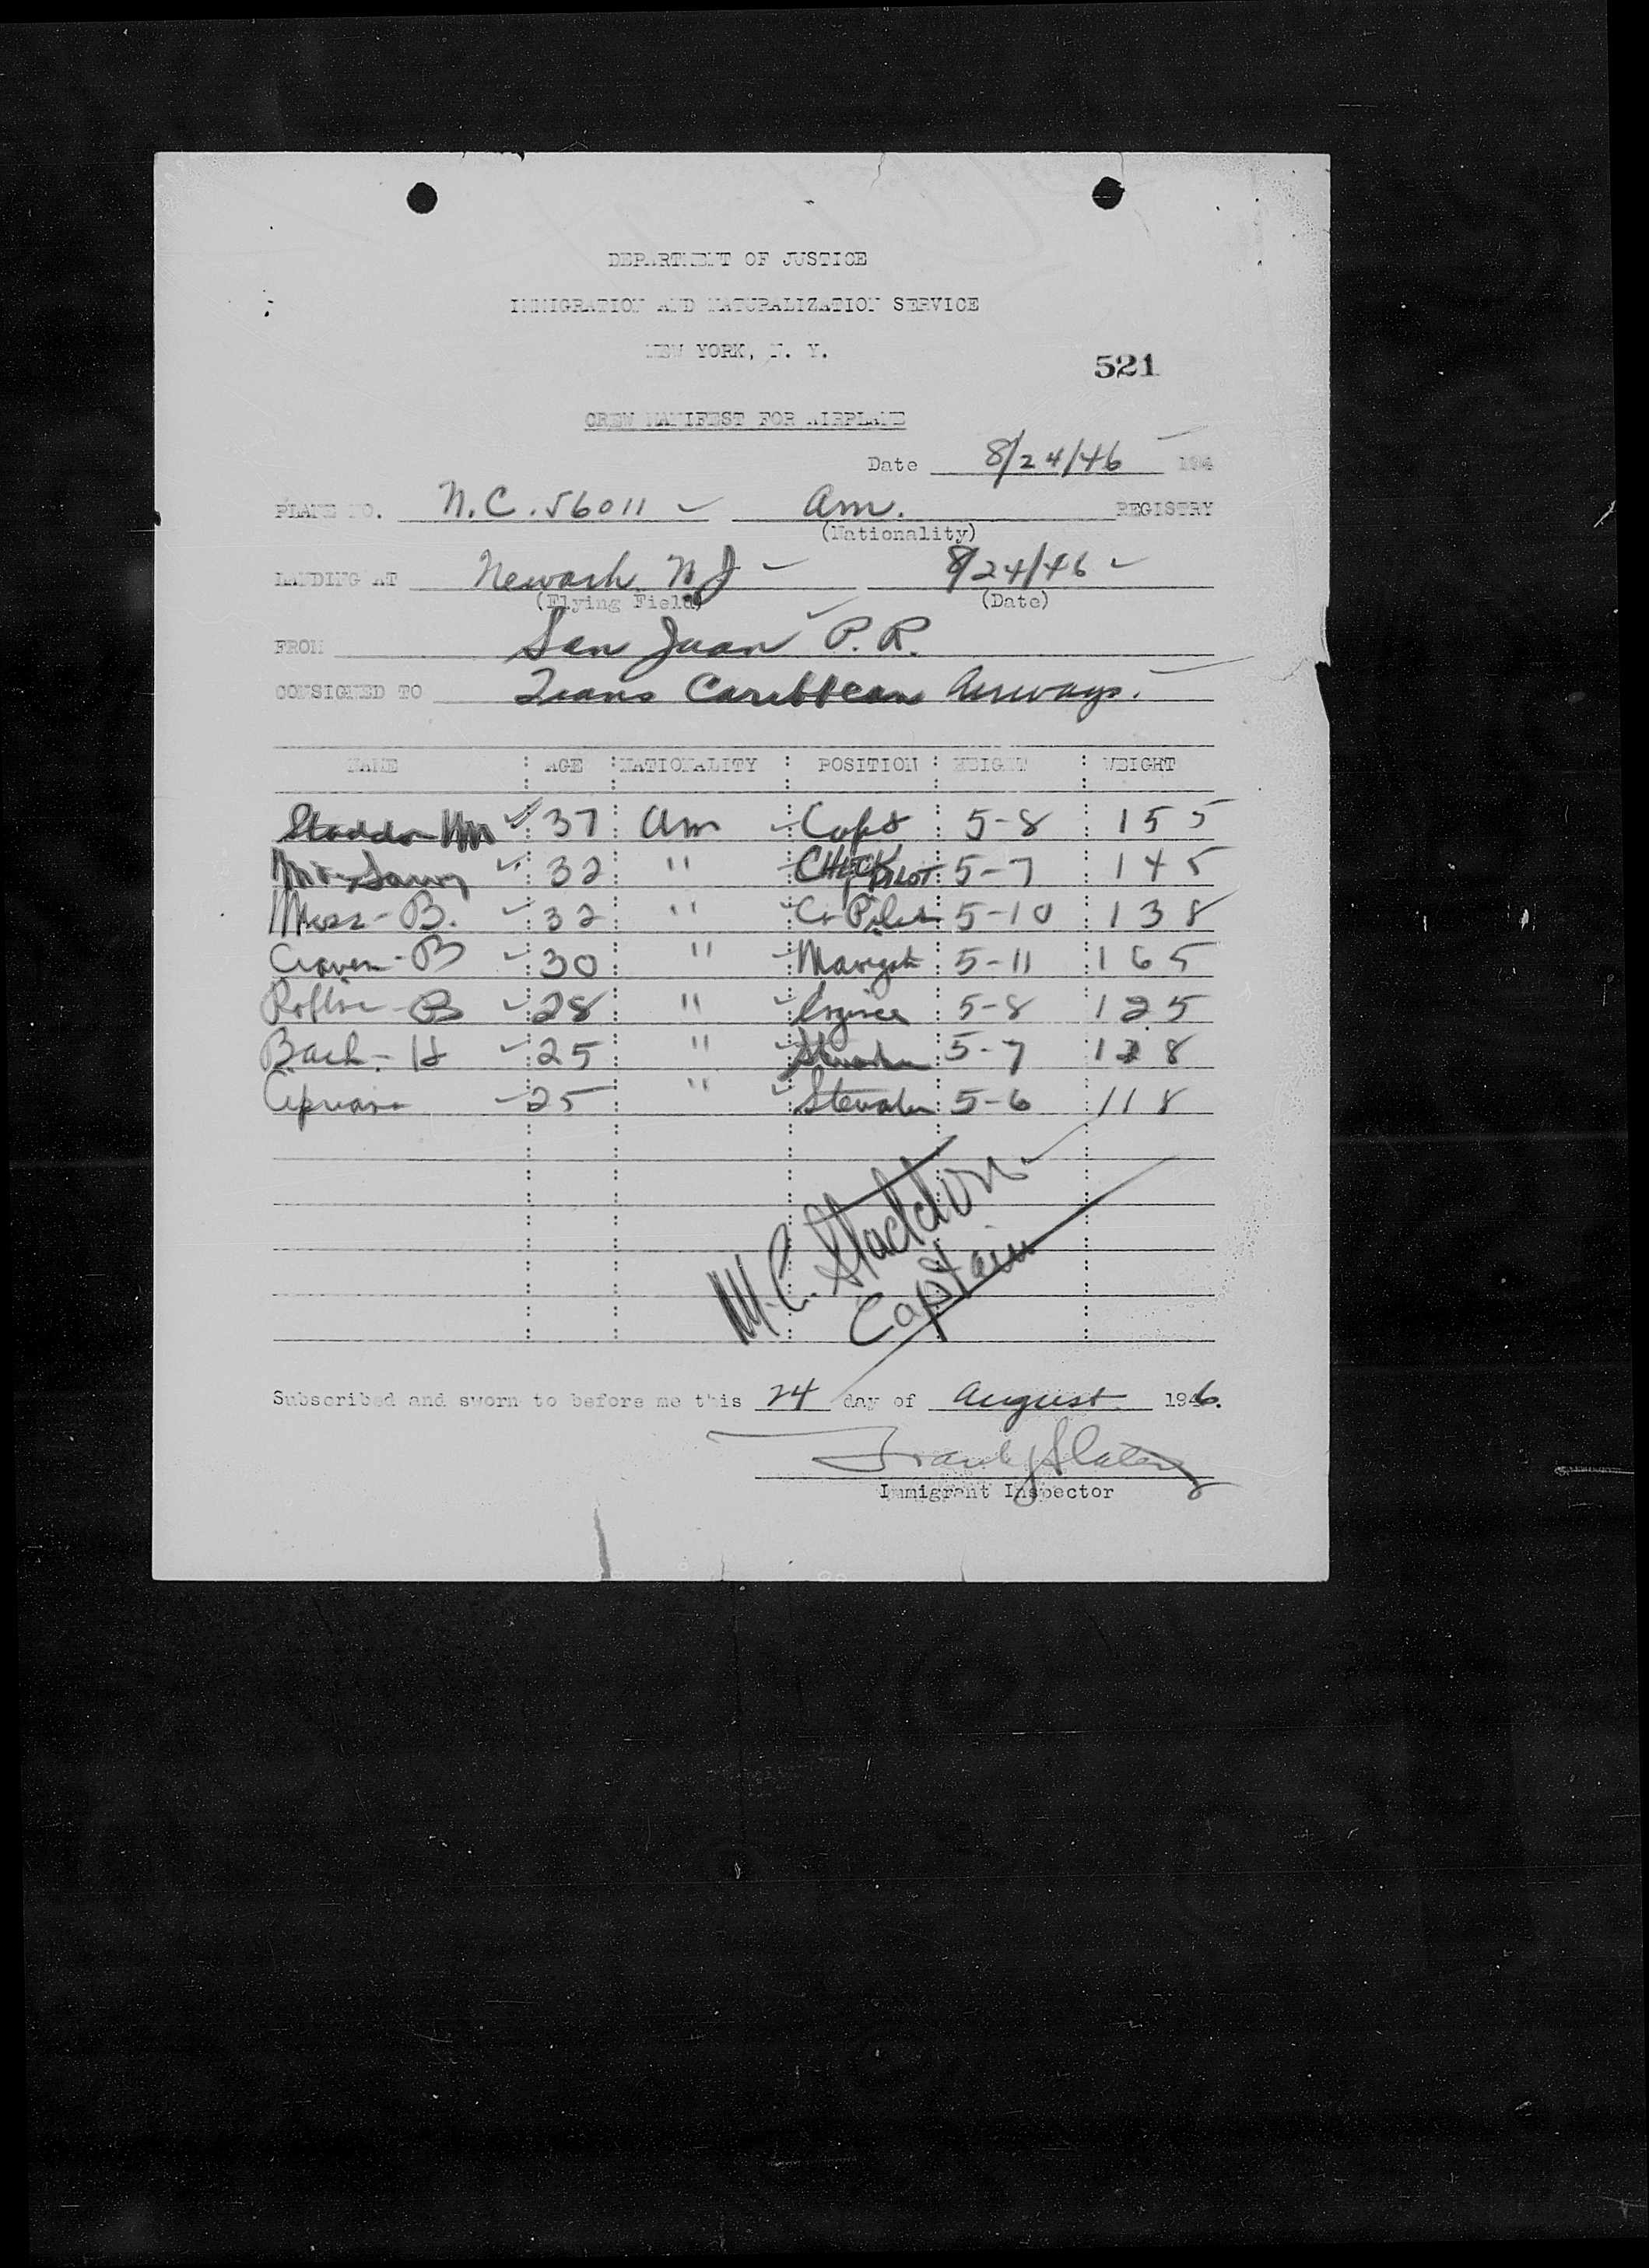 DEPARTMENT OF JUSTICE
IMMIGRATION AND NATURALIZATION SERVICE
NEW YORK, N. Y.
521
CREW MANIFEST FOR AIRPLANE
Date 8/24/46 194
PLANE NO. N.C. 56011 Am. REGISTRY
(Nationality)
LANDING AT Newark N.J 8/24/46
(Flying Field) (Date)
FROM San Juan P.R.
CONSIGNED TO Trans Caribbean Airways.
NAME : AGE : NATIONALITY : POSITION : HEIGHT : WEIGHT
Staddon 37 Am Capt 5-8 155
32 " CHECK PILOT 5-7 145
B. 32 " Co Pilot 5-10 138
Craven - B 30 " Navigat 5-11 165
B 28 " 5-8 125
Bach - H 25 " 5-7 128
25 " 5-6 118
M.C. Staddon
Captain
Subscribed and sworn to before me this 24 day of August 1946.
Frank J Slatery
Immigrant Inspector